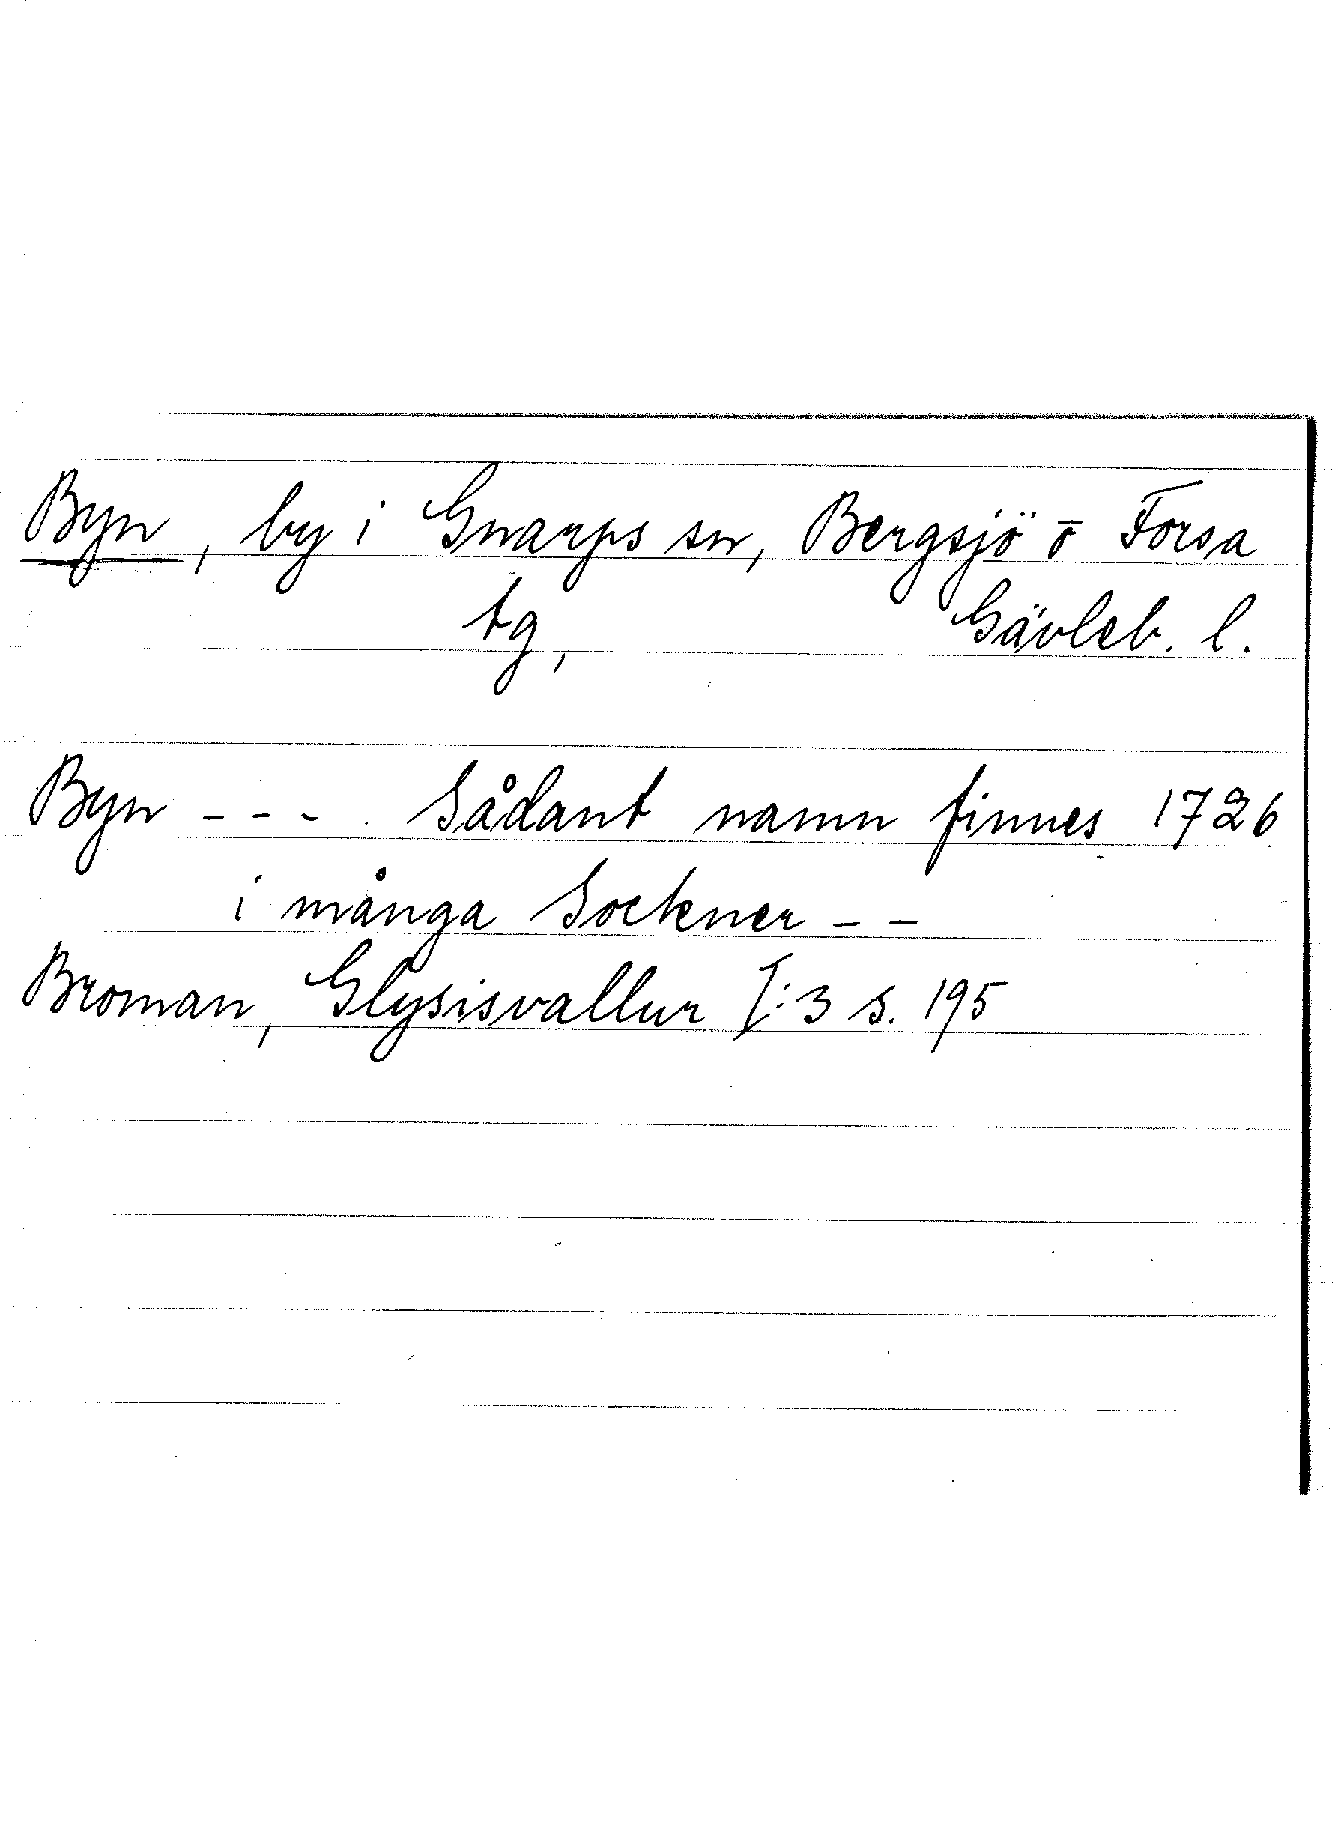 Byn, by i Gnarps sn, Bergsjö o Forsa
tg, Gävleb. l.
Byn - - - . Sådant namn finnes 1726
i många Sockner - -
Broman, Glysisvallur I:3 s. 195